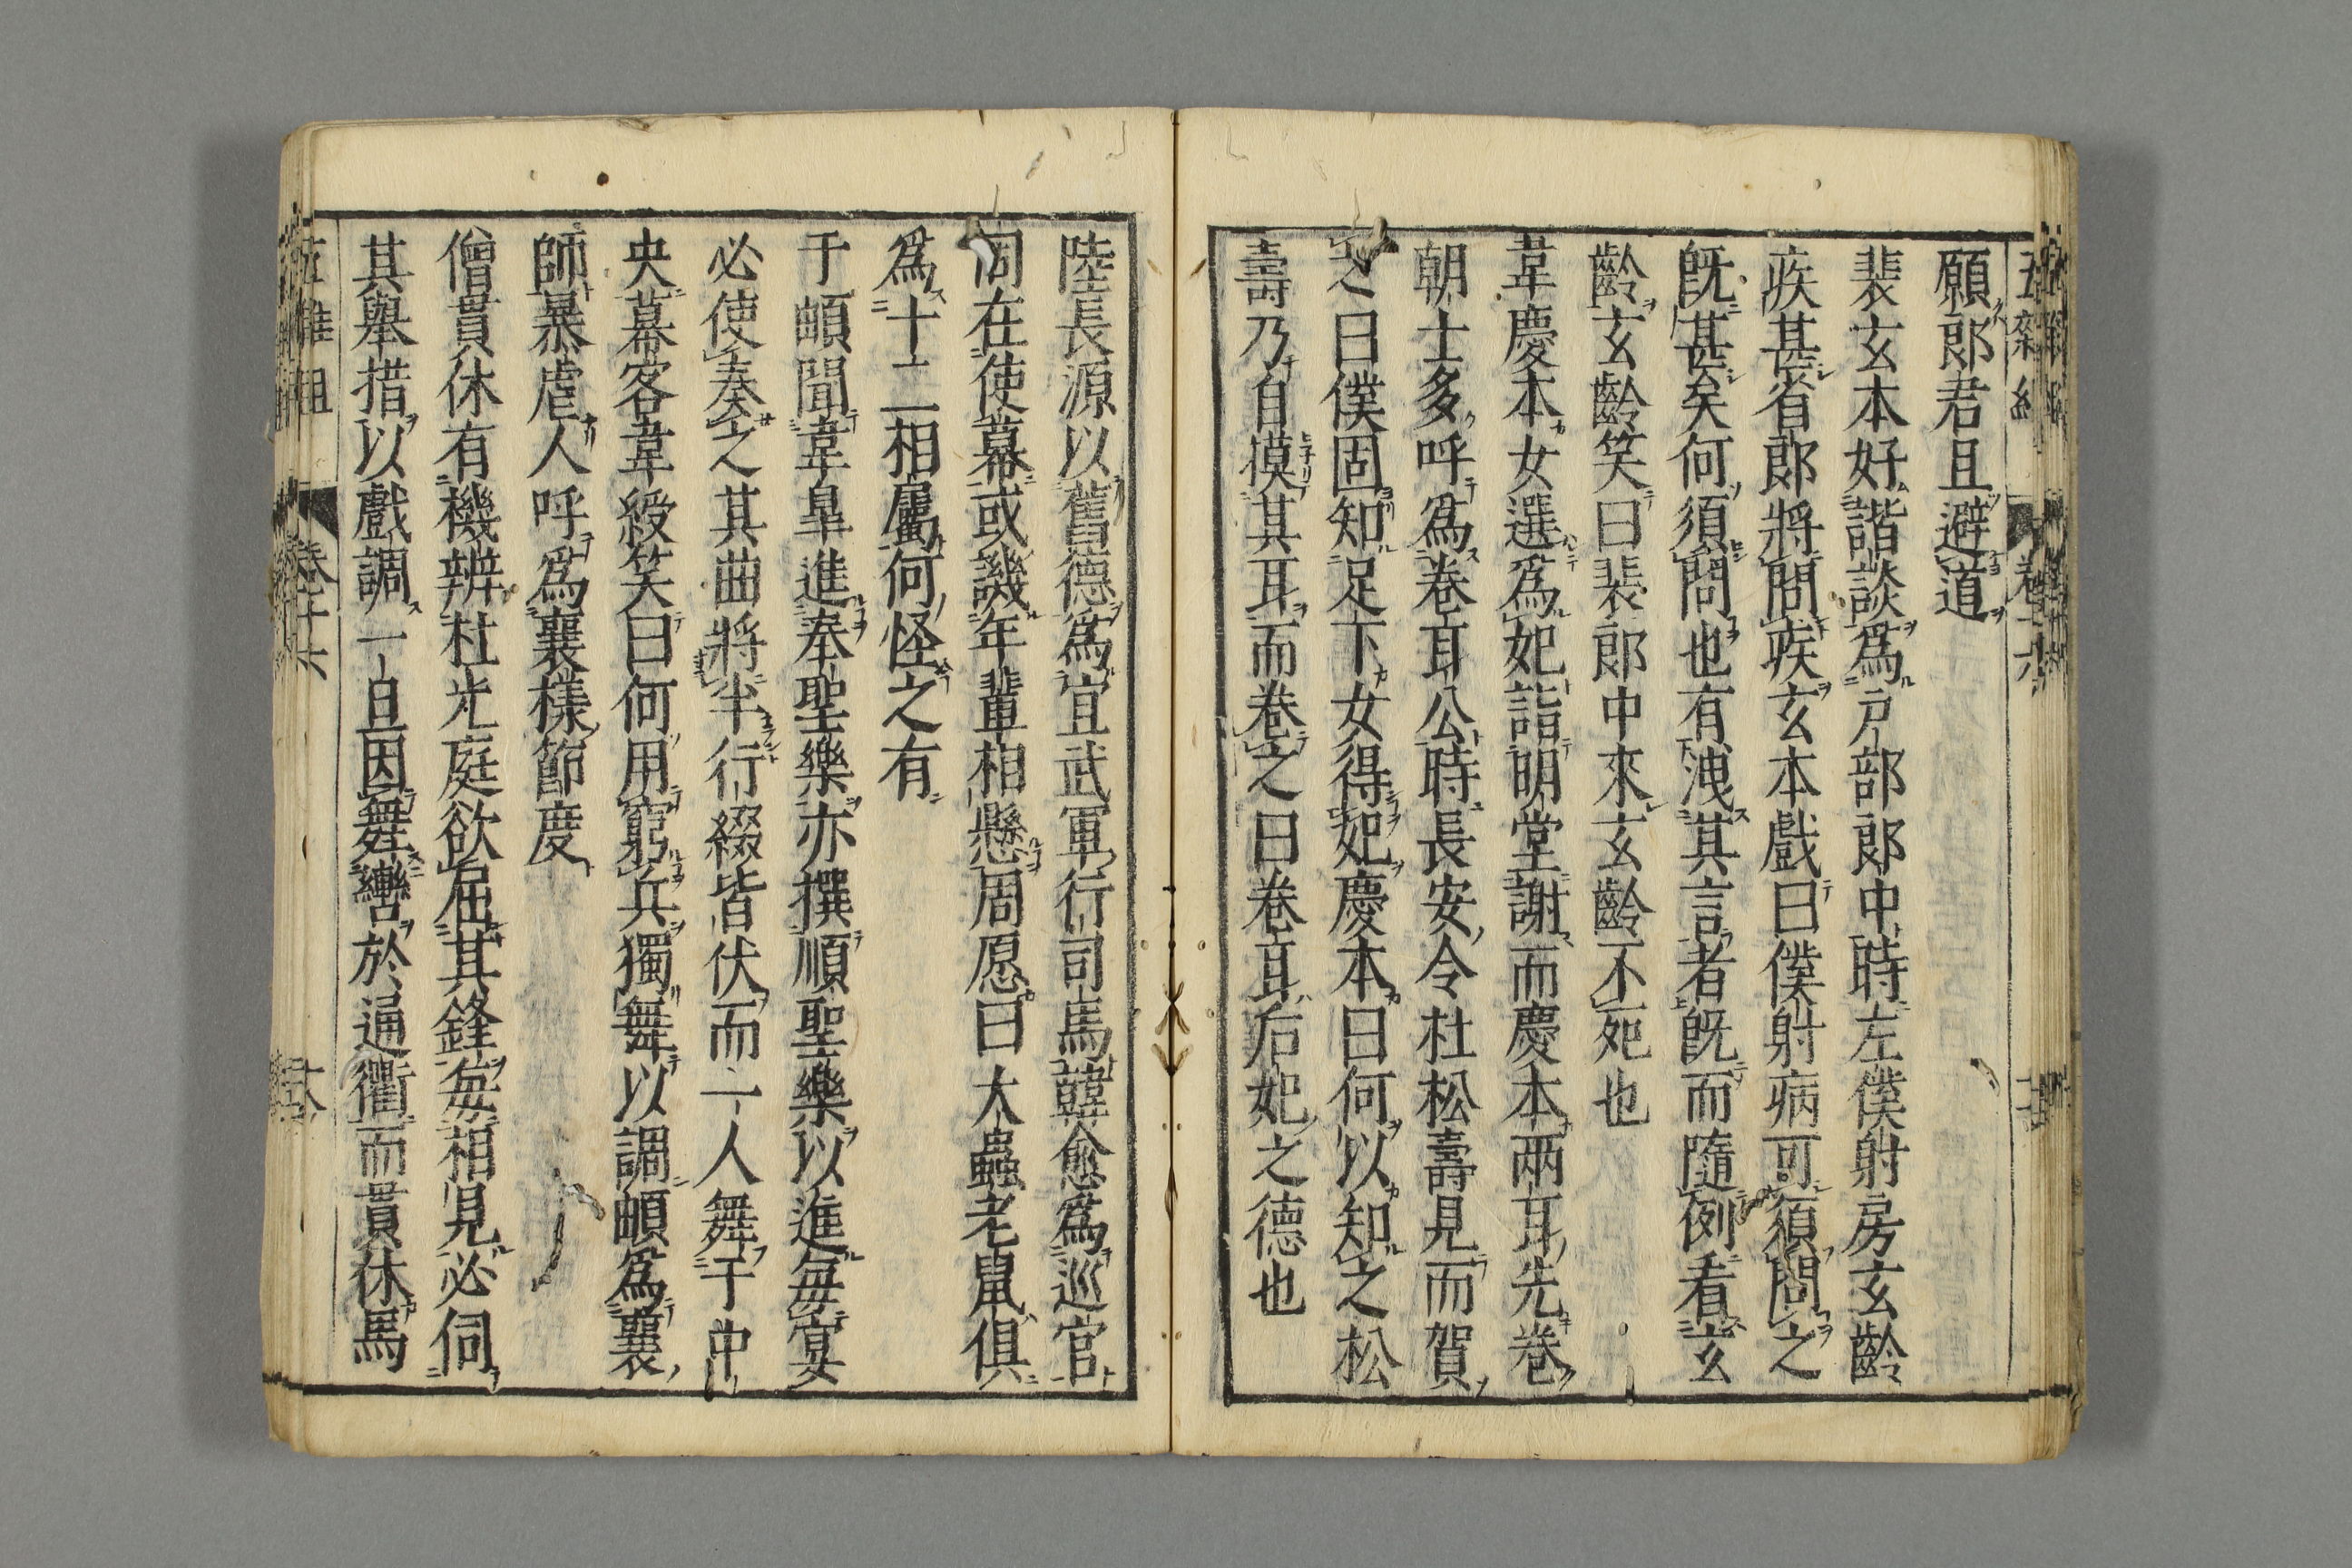 願郎君且避道
裴玄本好諧談爲戸部郎中時左僕射房玄齡
疾甚省郎將問疾玄本戲曰僕射病可須問之
既甚矣何須問也有洩其言者既而隨例看玄
齡玄齡笑曰裴郎中來玄齡不死也
韋慶本女選爲妃詣明堂謝而慶本兩耳先卷
朝士多呼爲卷耳公時長安令杜松壽見而賀
之曰僕固知足下女得妃慶本曰何以知之松
壽乃自摸其耳而卷之曰卷耳后妃之德也
陸長源以舊德爲宣武軍行司馬韓愈爲巡官
同在使幕或譏年輩相懸周愿曰大蟲老鼠俱
爲十二相屬何怪之有
于頔聞韋皐進奉聖樂亦撰順聖樂以進毎宴
必使奏之其曲將半行綴皆伏而一人舞于中
央幕客韋綬笑曰何用窮兵獨舞以調頔爲襄
師暴虐人呼爲襄樣節度
僧貫休有機辨杜光庭欲屈其鋒毎相見必伺
其舉措以戲調一旦因舞轡於通衢而貫休馬
五雜俎
卷十六